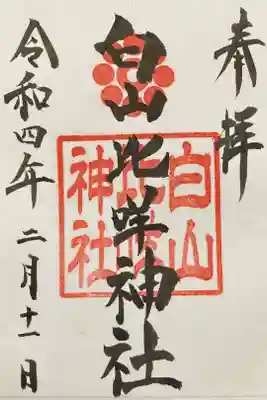 奉拝
白山比咩神社
令和四年二月十一日
白山
神社